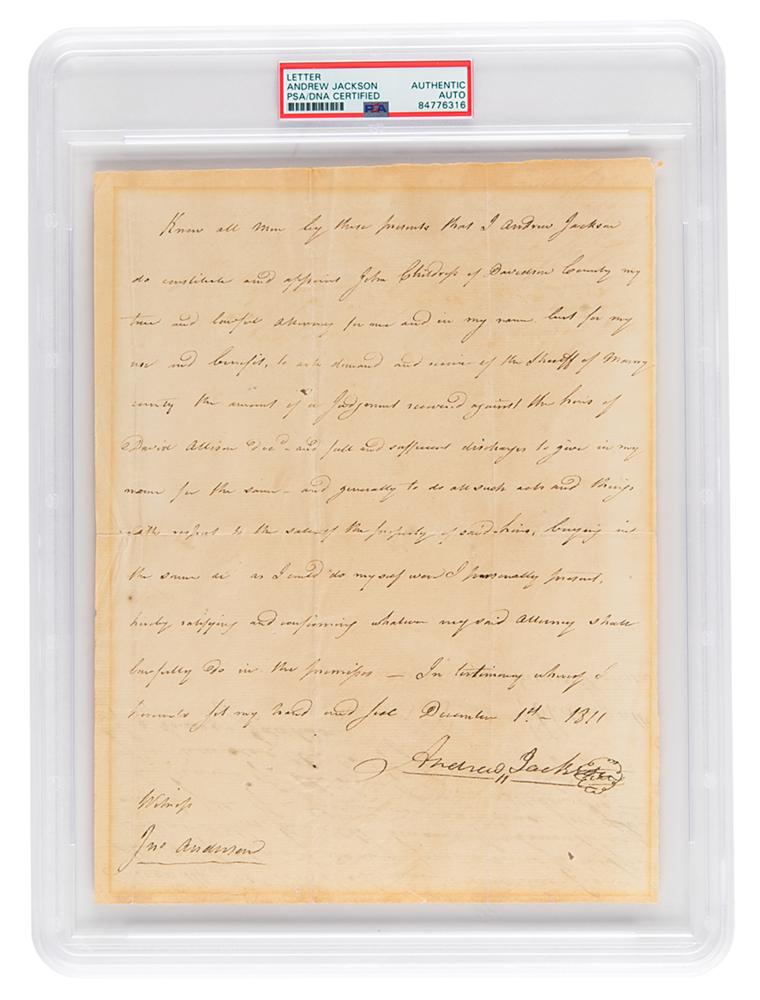 LETTER
ANDREW JACKSON
PSA/DNA CERTIFIED
AUTHENTIC
AUTO
84776316
PSA
Know all men by these presents that I Andrew Jackson
do constitute and appoint John Childress of Davidson County my
true and lawful attorney for me and in my name but for my
use and benefit, to ask demand and receive of the Sheriff of Maury
county the amount of a Judgement recovered against the heirs of
David Allison Decd - and full and sufficient discharges to give in my
name for the same - and generally to do all such acts and things
with respect to the sale of the property of said heirs, buying in
the same &c as I could do myself were I personally present,
hereby ratifying and confirming whatever my said attorney shall
lawfully do in the premises - In testimony whereof I
hereunto set my hand and seal December 1st - 1811
Andrew Jackson
Seal
Witness
Jno Anderson